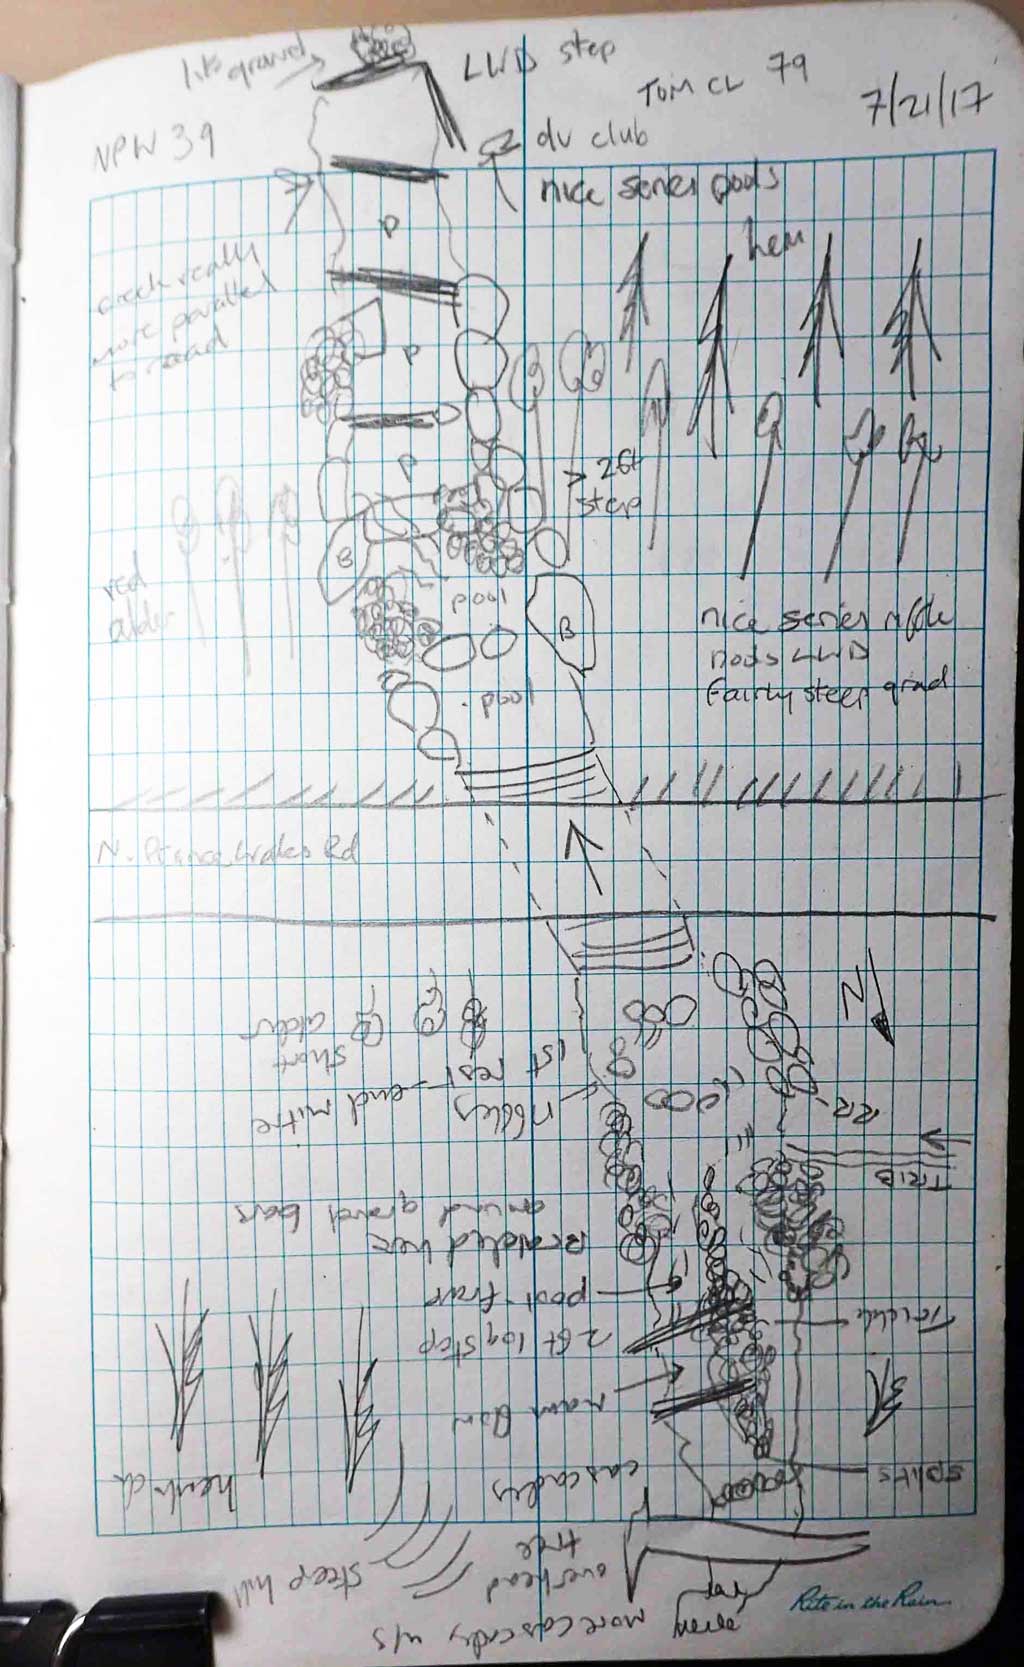 lots gravel
LWD step
TOM CL 79
7/21/17
NPW 39
dv club
nice series pools
hem
creek really
more parallel
to road
P
P
P
> 2ft
step
B
red
alder
pool
B
nice series riffle
pools LWD
Fairly steep grad
pool
N. Prince Wales Rd
N
short
alder
1st rest
riffles
end mitre
RR
TRIB
Braided here
around gravel bars
pool-fraw
2ft log step
Trickle
main flow
cascades
splits
hem-ch
steep hill
overhead
tree
more cascades u/s
here
Rite in the Rain